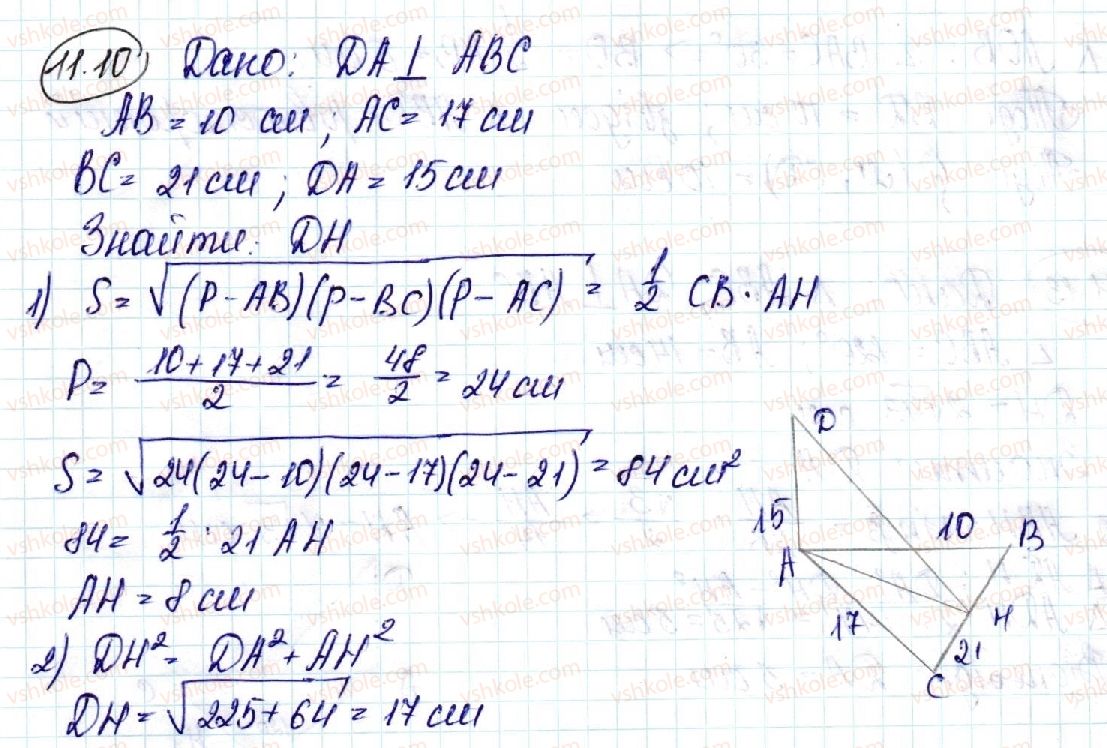 11.10 Дано: DA ⊥ ABC
AB = 10 см; AC = 17 см
BC = 21 см; DA = 15 см
Знайти: DH
1) S = √(P - AB)(P - BC)(P - AC) = 1/2 CB · AH
P = 10 + 17 + 21 / 2 = 48/2 = 24 см
S = √24(24 - 10)(24 - 17)(24 - 21) = 84 см²
84 = 1/2 · 21 AH
AH = 8 см
2) DH² = DA² + AH²
DH = √225 + 64 = 17 см
D
15
10
B
A
H
17
21
C
vshkole.com